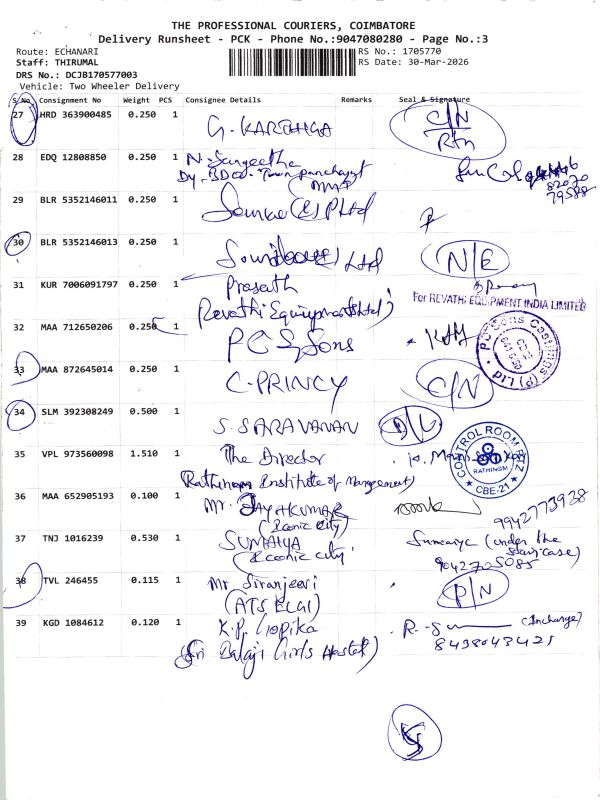 THE PROFESSIONAL COURIERS, COIMBATORE
Delivery Runsheet - PCK - Phone No.:9047080280 - Page No.:3
Route: ECHANARI
RS No.: 1705770
Staff: THIRUMAL
RS Date: 30-Mar-2026
DRS No.: DCJB170577003
Vehicle: Two Wheeler Delivery
S.No Consignment No Weight PCS Consignee Details Remarks Seal & Signature
27 HRD 363900485 0.250 1 G. KARTHIGA C/N
Rtn
28 EDQ 12808850 0.250 1 N. Sangeetha
Dy. BDO. Town panchayat
82070
79588
29 BLR 5352146011 0.250 1
30 BLR 5352146013 0.250 1 Ltd N/E
31 KUR 7006091797 0.250 1 Prasath
Revathi Equipments Ltd
For REVATHI EQUIPMENT INDIA LIMITED
32 MAA 712650206 0.250 1 P C S Sons
33 MAA 872645014 0.250 1 C. PRINCY C/N
34 SLM 392308249 0.500 1 S. SARAVANAN D/L
35 VPL 973560098 1.510 1 The Director
Rathinam Institute of Management)
CONTROL ROOM
RATHINAM
CBE-21
36 MAA 652905193 0.100 1 Mr. JAYAKUMAR
(Iconic City)
9942773938
37 TNJ 1016239 0.530 1 SUMAIYA
(Iconic city)
Sumaiya (under the
staircase)
9042705085
38 TVL 246455 0.115 1 Mr. Siranjeevi
(ATS ELGI)
P/N
39 KGD 1084612 0.120 1 K.P. Gopika
(Sri Balaji Girls Hostel)
(Incharge)
8438043425